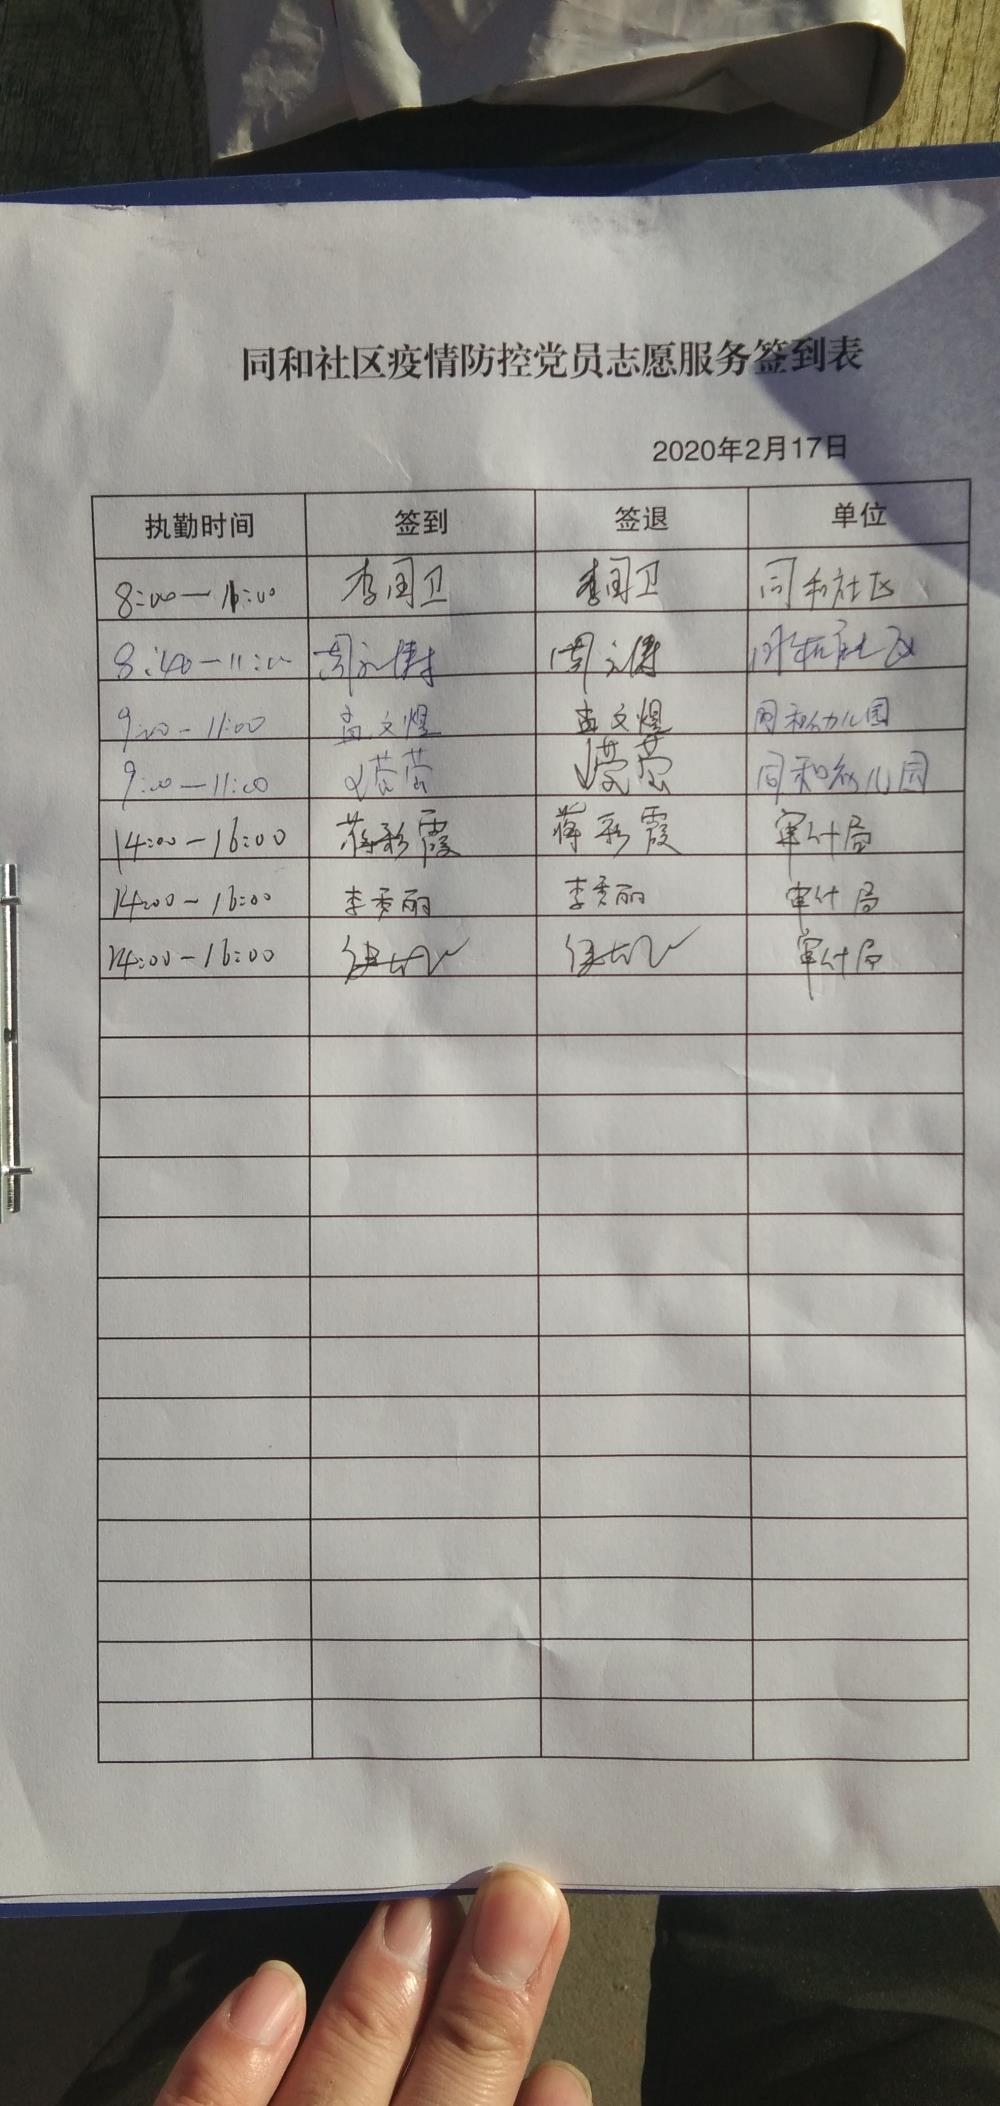 同和社区疫情防控党员志愿服务签到表
2020年2月17日
执勤时间 签到 签退 单位
8:00-11:00 李国卫 李国卫 同和社区
8:40-11:00 周 周 同和社区
9:00-11:00 孟文煜 孟文煜 同和幼儿园
9:00-11:00 同和幼儿园
14:00-16:00 蒋彩霞 蒋彩霞 审计局
14:00-16:00 李秀丽 李秀丽 审计局
14:00-16:00 审计局